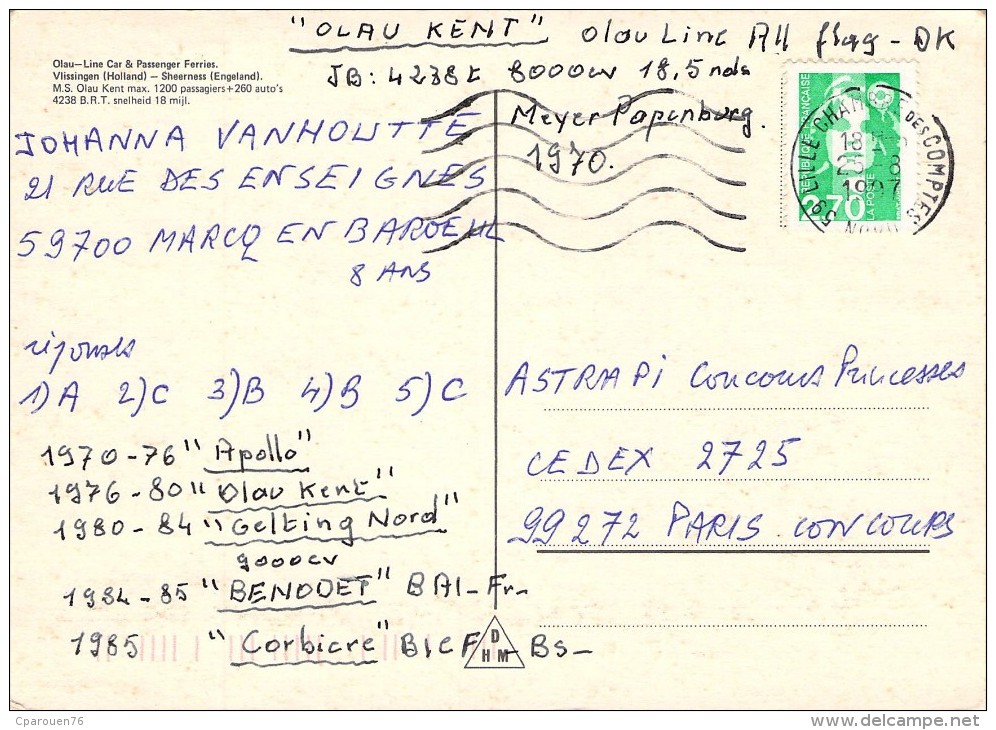 "OLAU KENT" Olau Line All flag - DK
Olau-Line Car & Passenger Ferries.
Vlissingen (Holland) - Sheerness (Engeland).
M.S. Olau Kent max. 1200 passagiers+260 auto's
4238 B.R.T. snelheid 18 mijl.
JB: 4238t 8000cv 18,5 nds
Meyer Papenburg.
1970.
JOHANNA VANHOUTTE
21 RUE DES ENSEIGNES
59700 MARCQ EN BAROEUL
8 ANS
RÉPUBLIQUE FRANÇAISE
2,70
LA POSTE
59 LILLE CHAM DES COMPTES
18
NORD
réponses
1) A 2) C 3) B 4) B 5) C
ASTRAPI Concours Princesses
CEDEX 2725
99272 PARIS CONCOURS
1970-76 "Apollo"
1976-80 "Olau Kent"
1980-84 "Gelting Nord"
9000cv
1984-85 "BENODET" BAI-Fr-
1985 "Corbiere" BICF - Bs-
D
H M
Cparouen76
delcampe.net